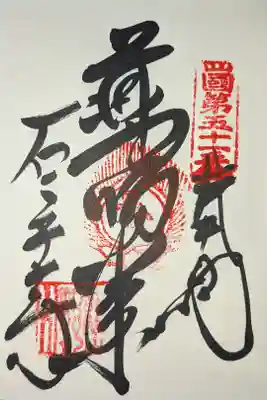 四國第五十一番
奉納
薬師
石手寺